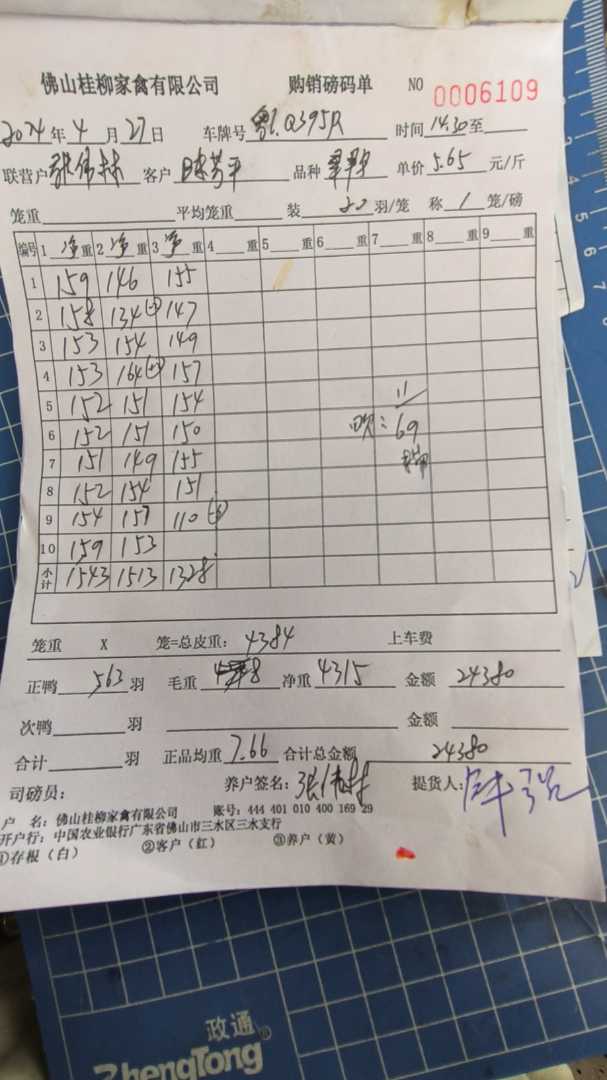 佛山桂柳家禽有限公司 购销磅码单 NO 0006109
2024年4月27日 车牌号 粤L Q395R 时间 14.30至
联营户 张伟林 客户 陈芳平 品种 单价 5.65 元/斤
笼重 平均笼重 装 20 羽/笼 称 1 笼/磅
编号 1 净 重 2 净 重 3 净 重 4 重 5 重 6 重 7 重 8 重 9 重
1 159 146 155
2 158 134 147
3 153 154 149
4 153 164 157
5 152 151 154 11
6 152 151 150 69
7 151 149 155
8 152 154 151
9 154 157 110
10 159 153
小计 1543 1513 1328
笼重 X 笼=总皮重: 4384 上车费
正鸭 563 羽 毛重 净重 4315 金额 24380
次鸭 羽 金额
合计 羽 正品均重 7.66 合计总金额 24380
司磅员: 养户签名: 张伟林 提货人:
户 名: 佛山桂柳家禽有限公司 账号: 444 401 010 400 169 29
开户行: 中国农业银行广东省佛山市三水区三水支行
①存根(白) ②客户(红) ③养户(黄)
政通
ZhengTong